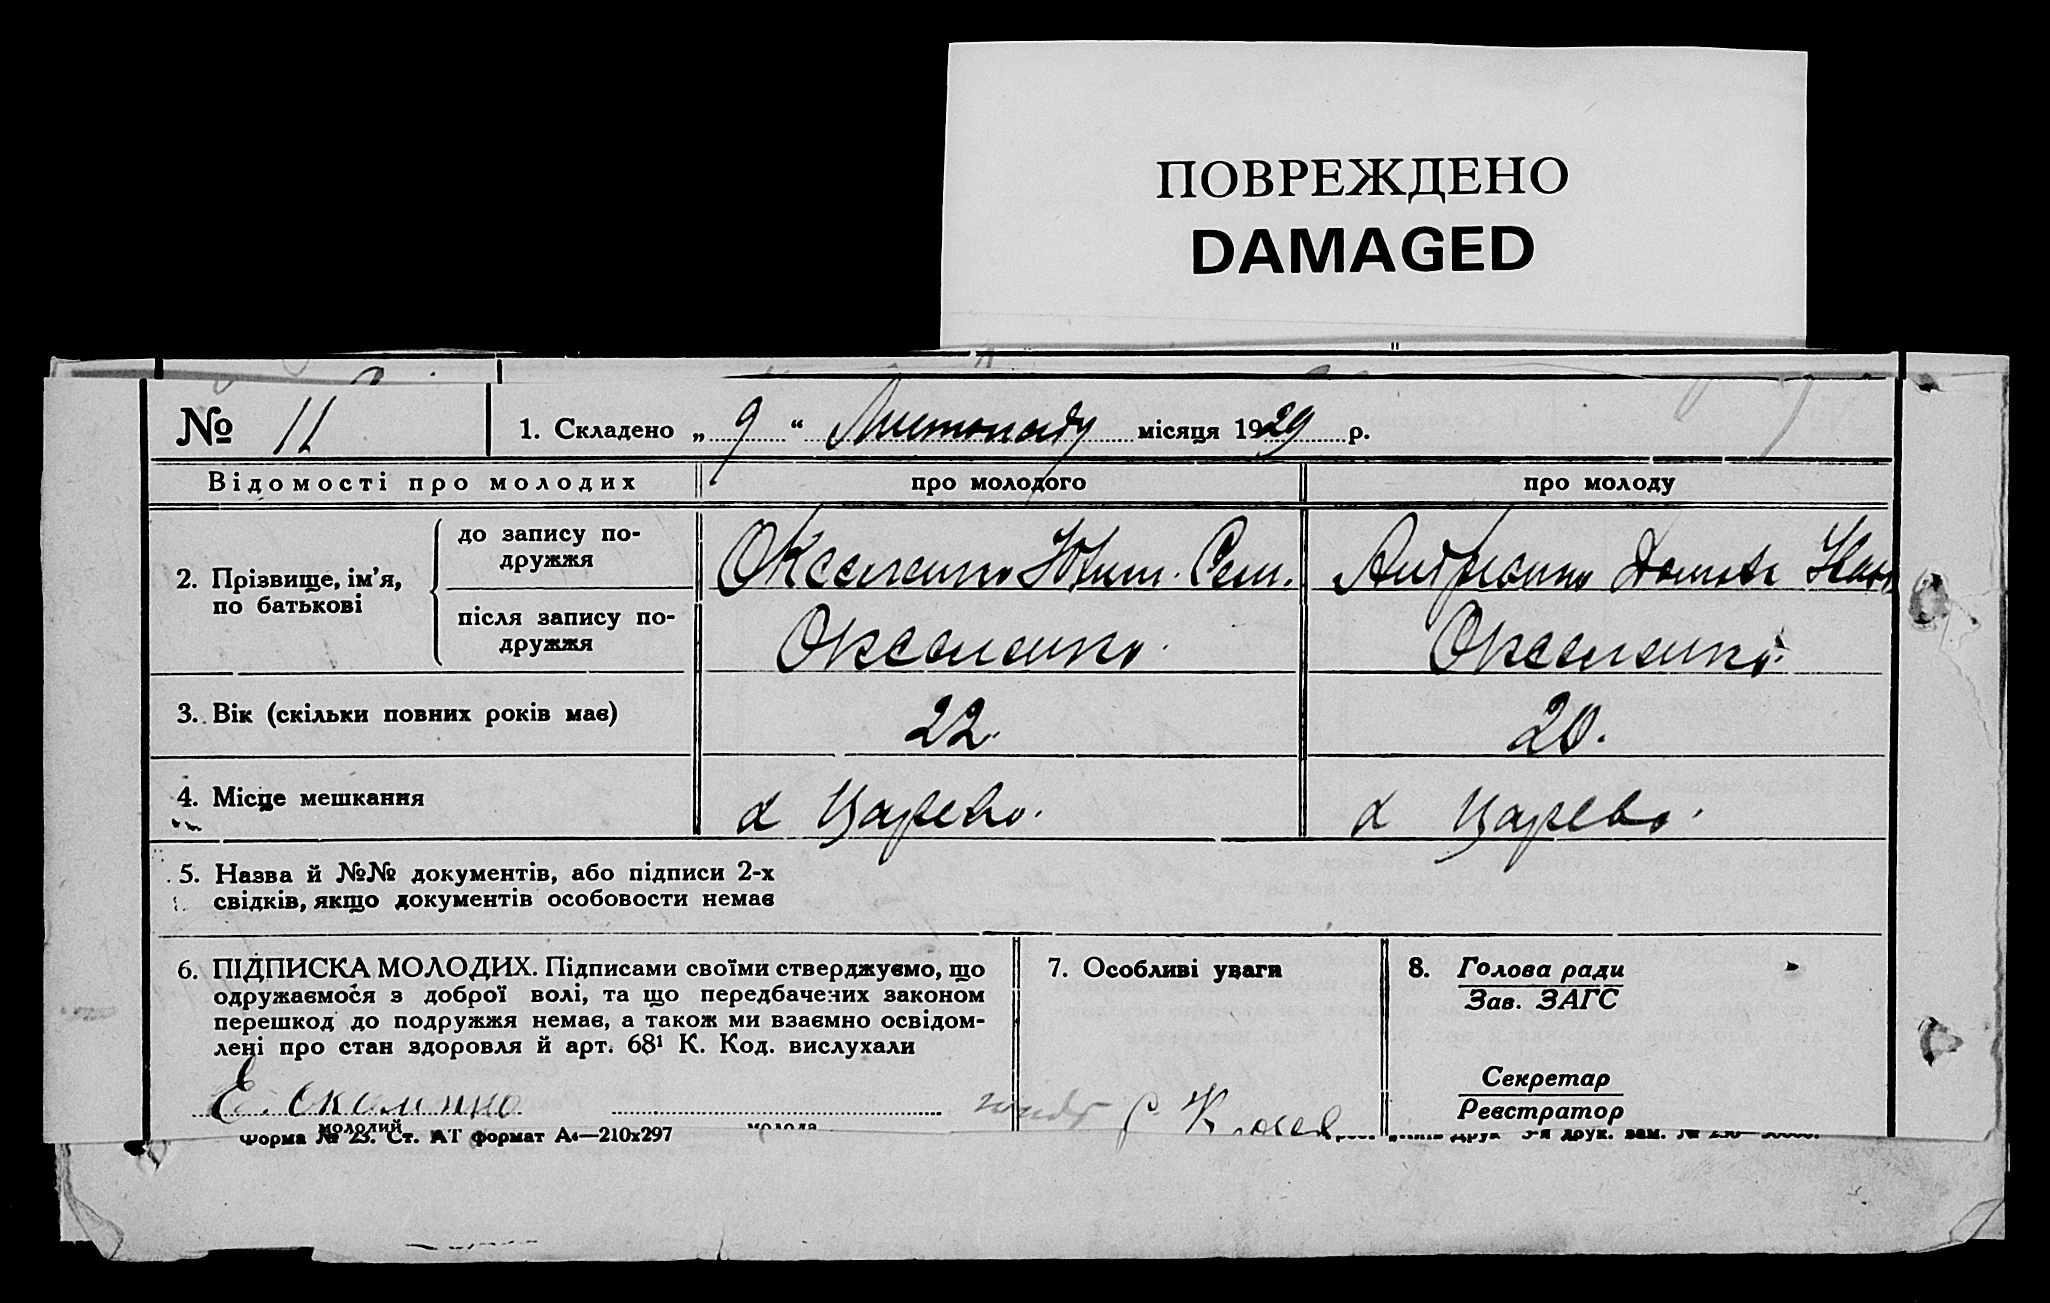 ПОВРЕЖДЕНО
DAMAGED
№ 11 1. Складено „ 9 “ Листопаду місяця 1929 р.
Відомості про молодих про молодого про молоду
2. Прізвище, ім’я, по батькові
до запису по-
дружжя
Сем.
після запису по-
дружжя
3. Вік (скільки повних років має) 22. 20.
4. Місце мешкання х Царево. х Царево.
5. Назва й №№ документів, або підписи 2-х
свідків, якщо документів особовости немає
6. ПІДПИСКА МОЛОДИХ. Підписами своїми стверджуємо, що
одружаємося з доброї волі, та що передбачених законом
перешкод до подружжя немає, а також ми взаємно освідом-
лені про стан здоровля й арт. 68¹ К. Код. вислухали
молодий молода
7. Особливі уваги
8. Голова ради
Зав. ЗАГС
Секретар
Реєстратор
Форма № 23. Ст. АТ формат А₄—210х297